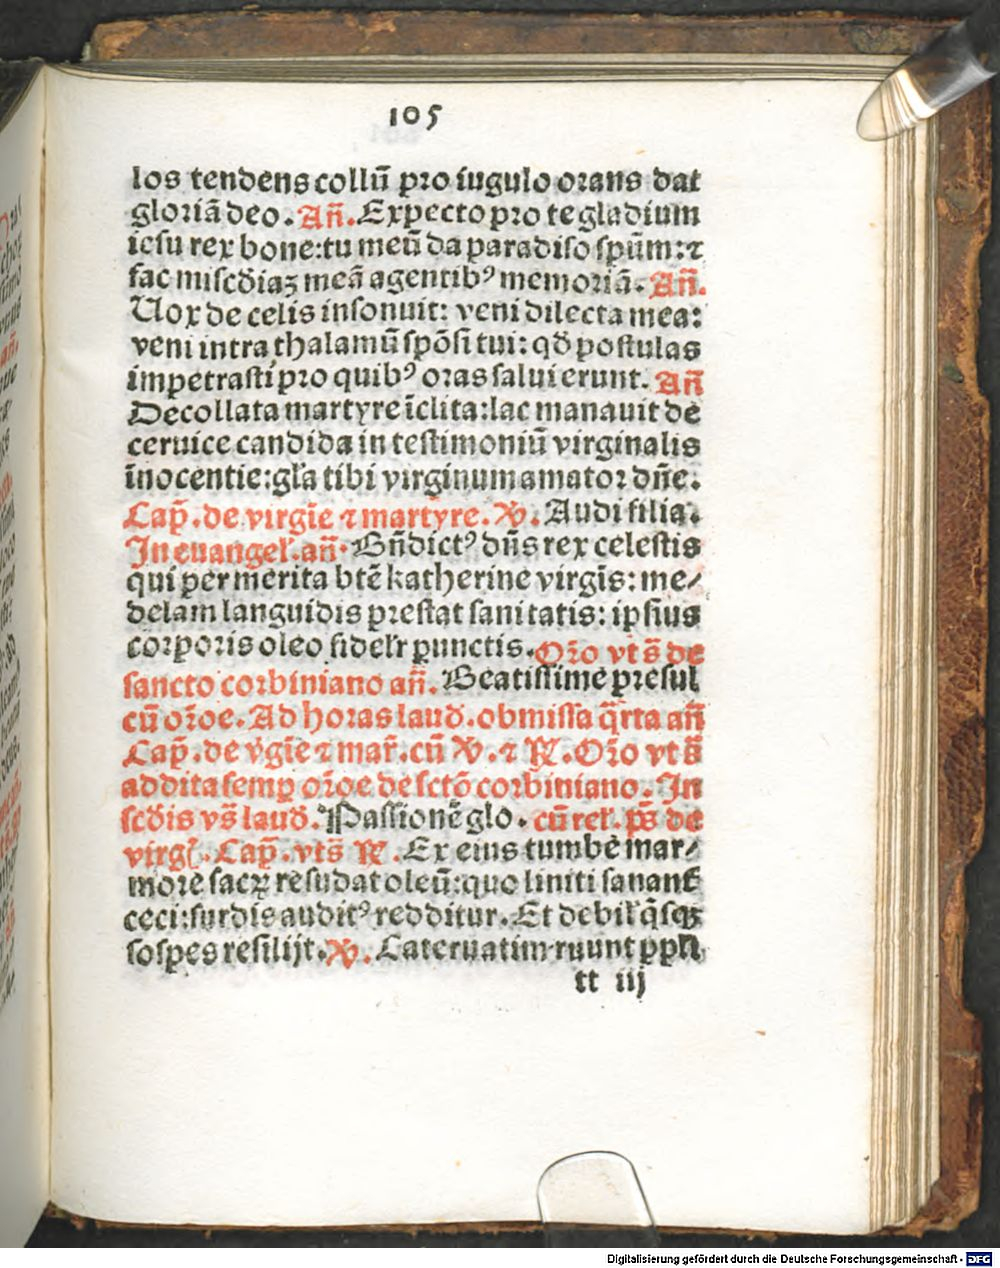 105
los tendens collū pro iugulo orans dat
gloriā deo. Añ. Expecto pro te gladium
iesu rex bone: tu meū da paradiso spūm: ⁊
fac miscd̄iaꝫ meā agentibꝰ memoriā. Añ.
Uox de celis insonuit: veni dilecta mea:
veni intra thalamū spōsi tui: qd̄ postulas
impetrasti pro quibꝰ oras salui erunt. Añ
Decollata martyre īclita: lac manauit de
ceruice candida in testimoniū virginalis
īnocentie: gl̄a tibi virginum amator dn̄e.
Cap̄. de virgīe ⁊ martyre. ℣. Audi filia.
In euangel̄. añ. Bn̄dictꝰ dn̄s rex celestis
qui per merita btē katherine virgīs: me⸗
delam languidis prestat sanitatis: ipsius
corporis oleo fidelr̄ ꝑunctis. Or̄o vt s̄ de
sancto corbiniano añ. Beatissime presul
cū or̄oe. Ad horas laud̄. obmissa q̄rta añ
Cap̄. de v̄gīe ⁊ mar̄. cū ℣. ⁊ ℟. Or̄o vt s̄
addita semꝑ or̄oe de sctō corbiniano. In
scd̄is vs̄ laud̄. Passionē glo. cū rel̄. ps̄ de
virgī. Cap̄. vt s̄ ℟. Ex eius tumbe mar⸗
more sacꝝ resudat oleū: quo liniti sanant̄
ceci: surdis auditꝰ redditur. Et debil̄ q̄sqꝫ
sospes resilijt. ℣. Cateruatim ruunt ppl̄i
tt iij
Digitalisierung gefördert durch die Deutsche Forschungsgemeinschaft - DFG